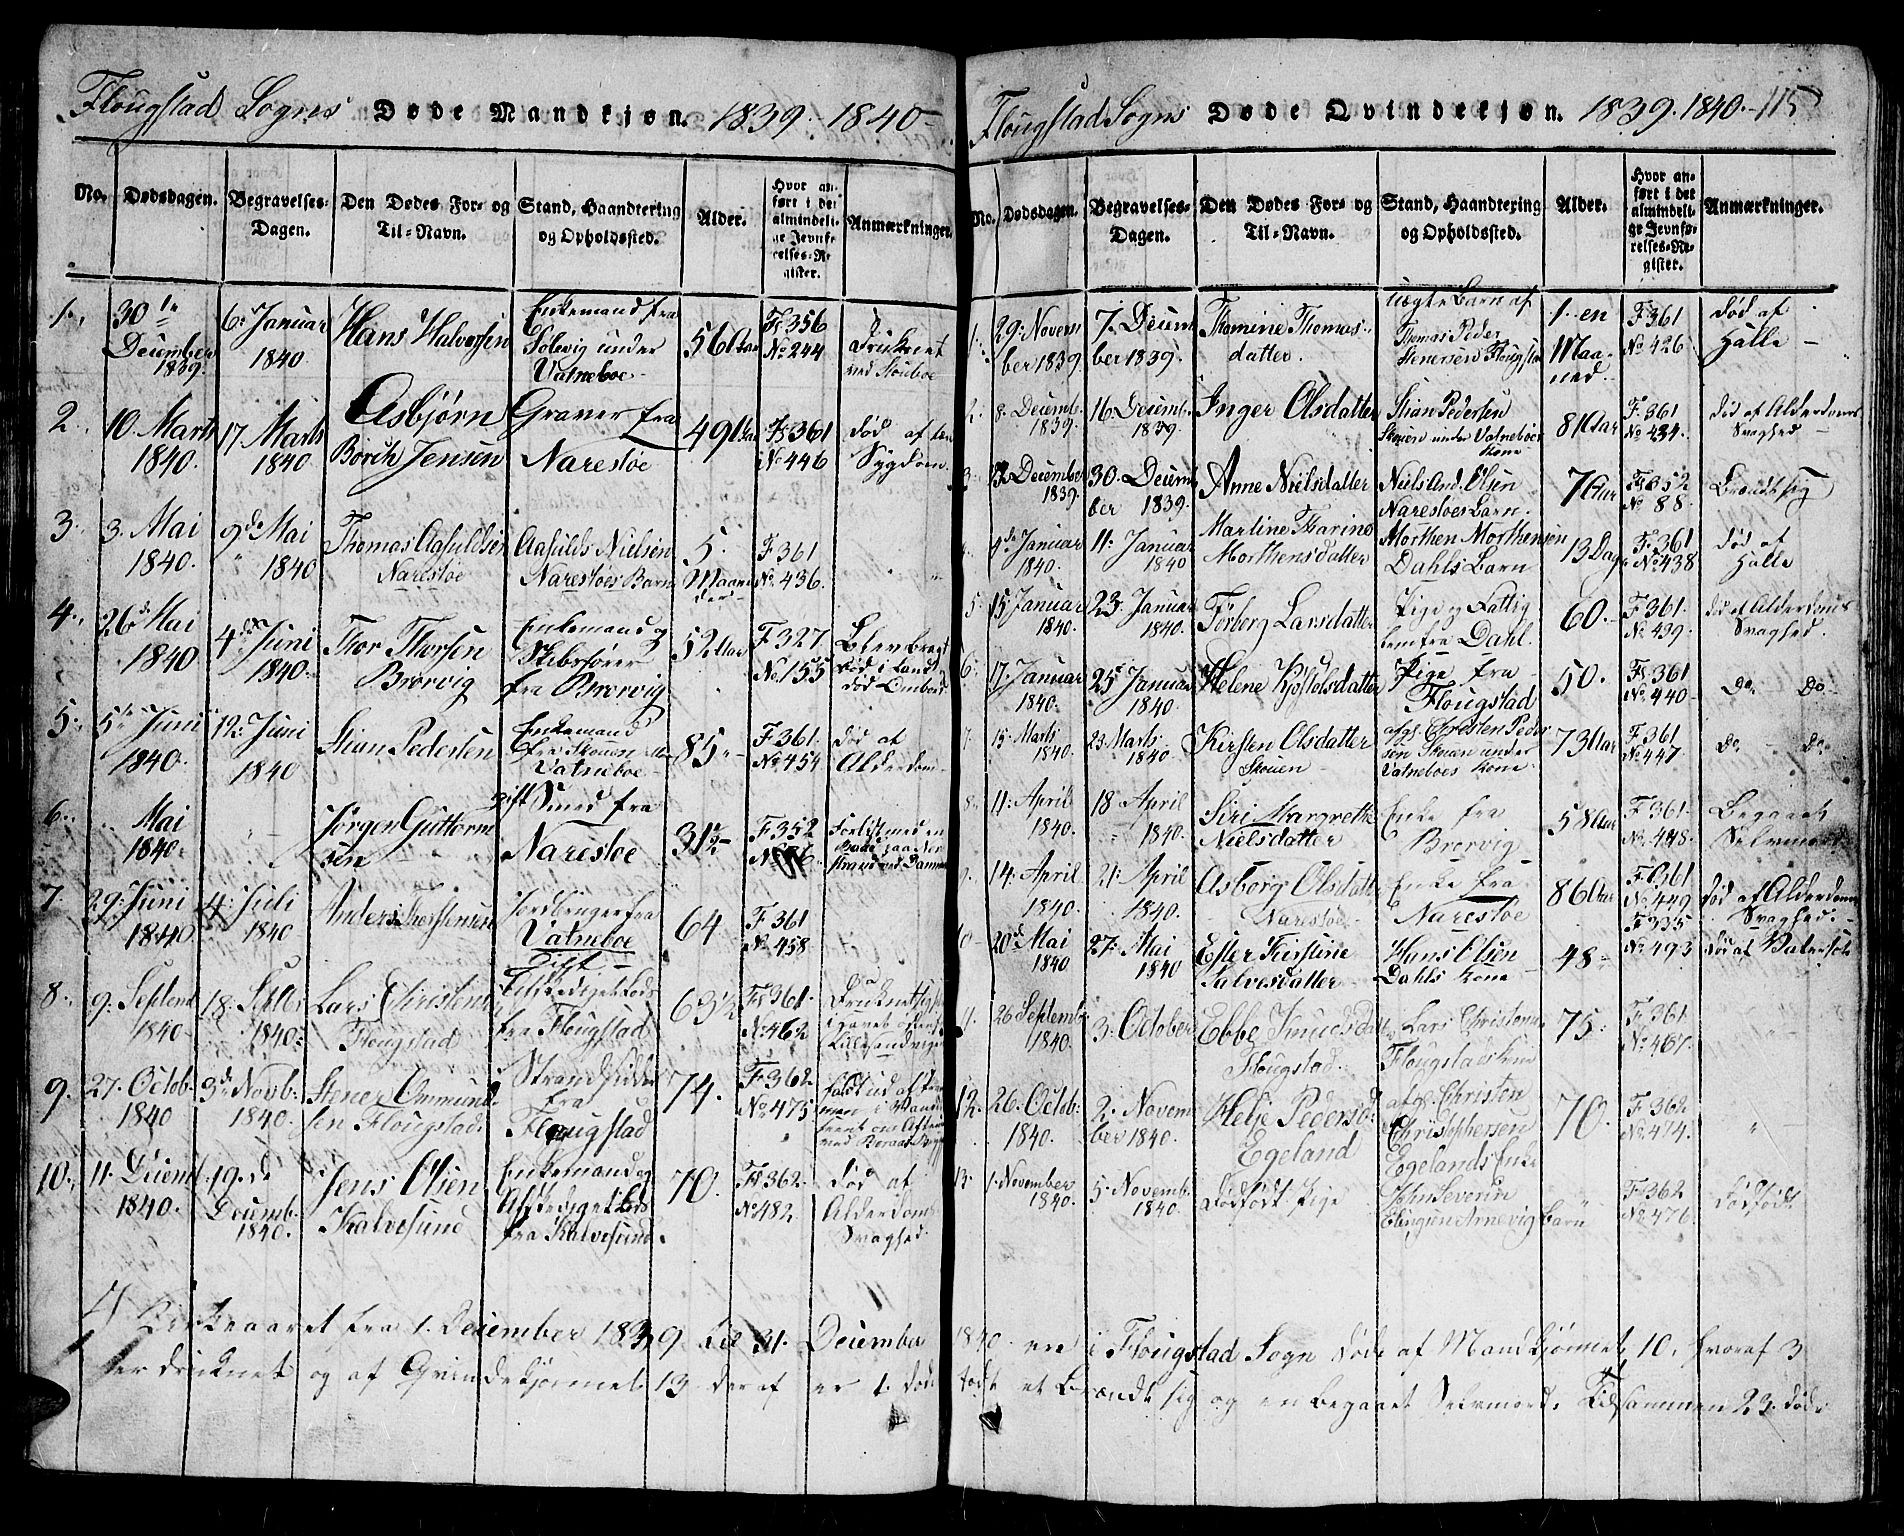 Flougstad Sogns Døde Mandkjøn. 1839 - 1840 -
No. Dødsdagen. Begravelses-Dagen. Den Dødes For- og Til-Navn. Stand, Haandtering og Opholdssted. Alder. Hvor anført i det almindelige Jevnførelses-Register. Anmærkninger.
1. 30te December 1839. 6: Januar 1840. Hans Halvorsen Enkemand fra Solevig under Vatneboe 56 Aar Fs 356 No 244 Druknet ved
2 10. Marts 1840. 17 Marts 1840 Asbjørn Borith Jensen Graver fra Narestøe 49 Aar Fs 361 No 446 død af en Sygdom.
3. 3. Mai 1840. 9de Mai 1840 Thomas Aasuldsen Narestøe Aasulds Nielsen Narestøes Barn 5. Maaneder F 361 No. 436.
4. 26de Mai 1840 4de Juni 1840. Thor Thorsen Brervig Enkemand og Skibsfører fra Brervig 52 Aar F 327 No. 155 Blev bragt død i Land død Ombord
5. 5te Juni 1840. 12: Juni 1840 Stian Pedersen Enkemand fra Skouen Vatneboe 85 F 361. No. 454 død af Alderdom
6. Mai 1840 Jørgen Guttormsen gift Smed fra Narestøe 31½ F. 352 Forlist med en Baad paa
7. 29. Juni 1840 4: Juli 1840 Anders Thorstensen Jordbruger fra Vatneboe Gift 64 F. 361 No. 458.
8. 9. Septem 1840 18: Septbr 1840 Lars Christens Flougstad fra Flougstad 63½ Fs 361. No. 462 Druknet i Havet
9. 27. Octob. 1840 3de Novb. 1840. Stener Ommundsen Flougstad. Strandsidder fra Flougstad 74. F 362 No. 475
10. 11. Decemb 1840. 19. de Decemb. 1840. Jens Olsen Kalvesund Enkemand og fra Kalvesund. 70. Fs 362. No. 482 død af Alderdoms Svaghed.
Flougstad Sogns Døde Qvindekjøn. 1839. 1840. 115
No. Dødsdagen. Begravelses-Dagen. Den Dødes For- og Til-Navn. Stand, Haandtering og Opholdssted. Alder. Hvor anført i det almindelige Jevnførelses-Register. Anmærkninger.
1. 29. November 1839. 7. December 1839. Thomine Thomasdatter. uægte Barn af Thomas Peder Stenersen Flougstad 1. en Maaned. F 361 No 426 død af Hälle
2. 8. Decemb. 1839. 16. Decemb. 1839. Inger Olsdatter Stian Pedersen Skouen under Vatneboes Kone 81 Aar F. 361 No 434. død af Alderdoms Svaghed
3. 13. December 1839. 30. December 1839. Anne Nielsdatter Niels And. Olsen Narestøes Barn. 7 Aar Fs 352 No 88. Brændt sig
4. 4de Januar 1840. 11. Januar 1840 Martine Tharine Morthensdatter Morthen Morthensen Dahls Barn 13 Dage Fs 361 No 438 død af Hälle
5. 15 Januar 1840. 23. Januar 1840. Torberg Larsdatter Pige og Fattiglem fra Dahl. 60. F. 361. No. 439. død af Alderdoms Svaghed.
6. 17. Januar 1840. 25 Januar 1840. Helene Kjøstolsdatter Pige fra Flougstad 50. Fs 361 No 440 Do Do
7. 15. Marts 1840. 23. Marts 1840. Kirsten Olsdatter Skouen afg. Christen Pedersen Skouen under Vatneboes Kone 73 Aar F 361 No 447 Do Do
8. 11: April 1840. 18. April 1840. Siri Margrethe Nielsdatter Enke fra Brervig 58 Aar F 361 No. 448. Begaaet Selvmord
9. 14: April 1840. 21: April 1840. Asborg Olsdatter Narestøe Enke fra Narestøe 86 Aar F. 361 No. 449 død af Alderdoms Svaghed.
10 20de Mai 1840 27: Mai 1840 Ester Kirstine Salvesdatter Hans Olsen Dahls Kone 48 F 335 No. 493 død af Vatersot
11. 26 Septemb 1840. 3. October Ebbe Knudsdatter Flougstad. Lars Christens Flougstads Kone 75. F. 361 No. 467.
12. 26. Octob: 1840. 2. November 1840. Helje Pedersd Egeland afg. Christen Christophersen Egelands Enke 70. F 362 No. 474.
13. 1. November 1840. 5. Novemb. 1840. Dødfødt Pige John Severin Elingsen Arnevig Barn F 362 No 476. Dødfødt
I Kirkeaaret fra 1. December 1839 til 31. December 1840 ere i Flougstad Sogn døde af Mandkjønnet 10. hvoraf 3
er druknet og af Qvindekjønnet 13 deraf er 1. dødfødt et Brændt sig og en begaaet Selvmord. Tilsammen 23. døde